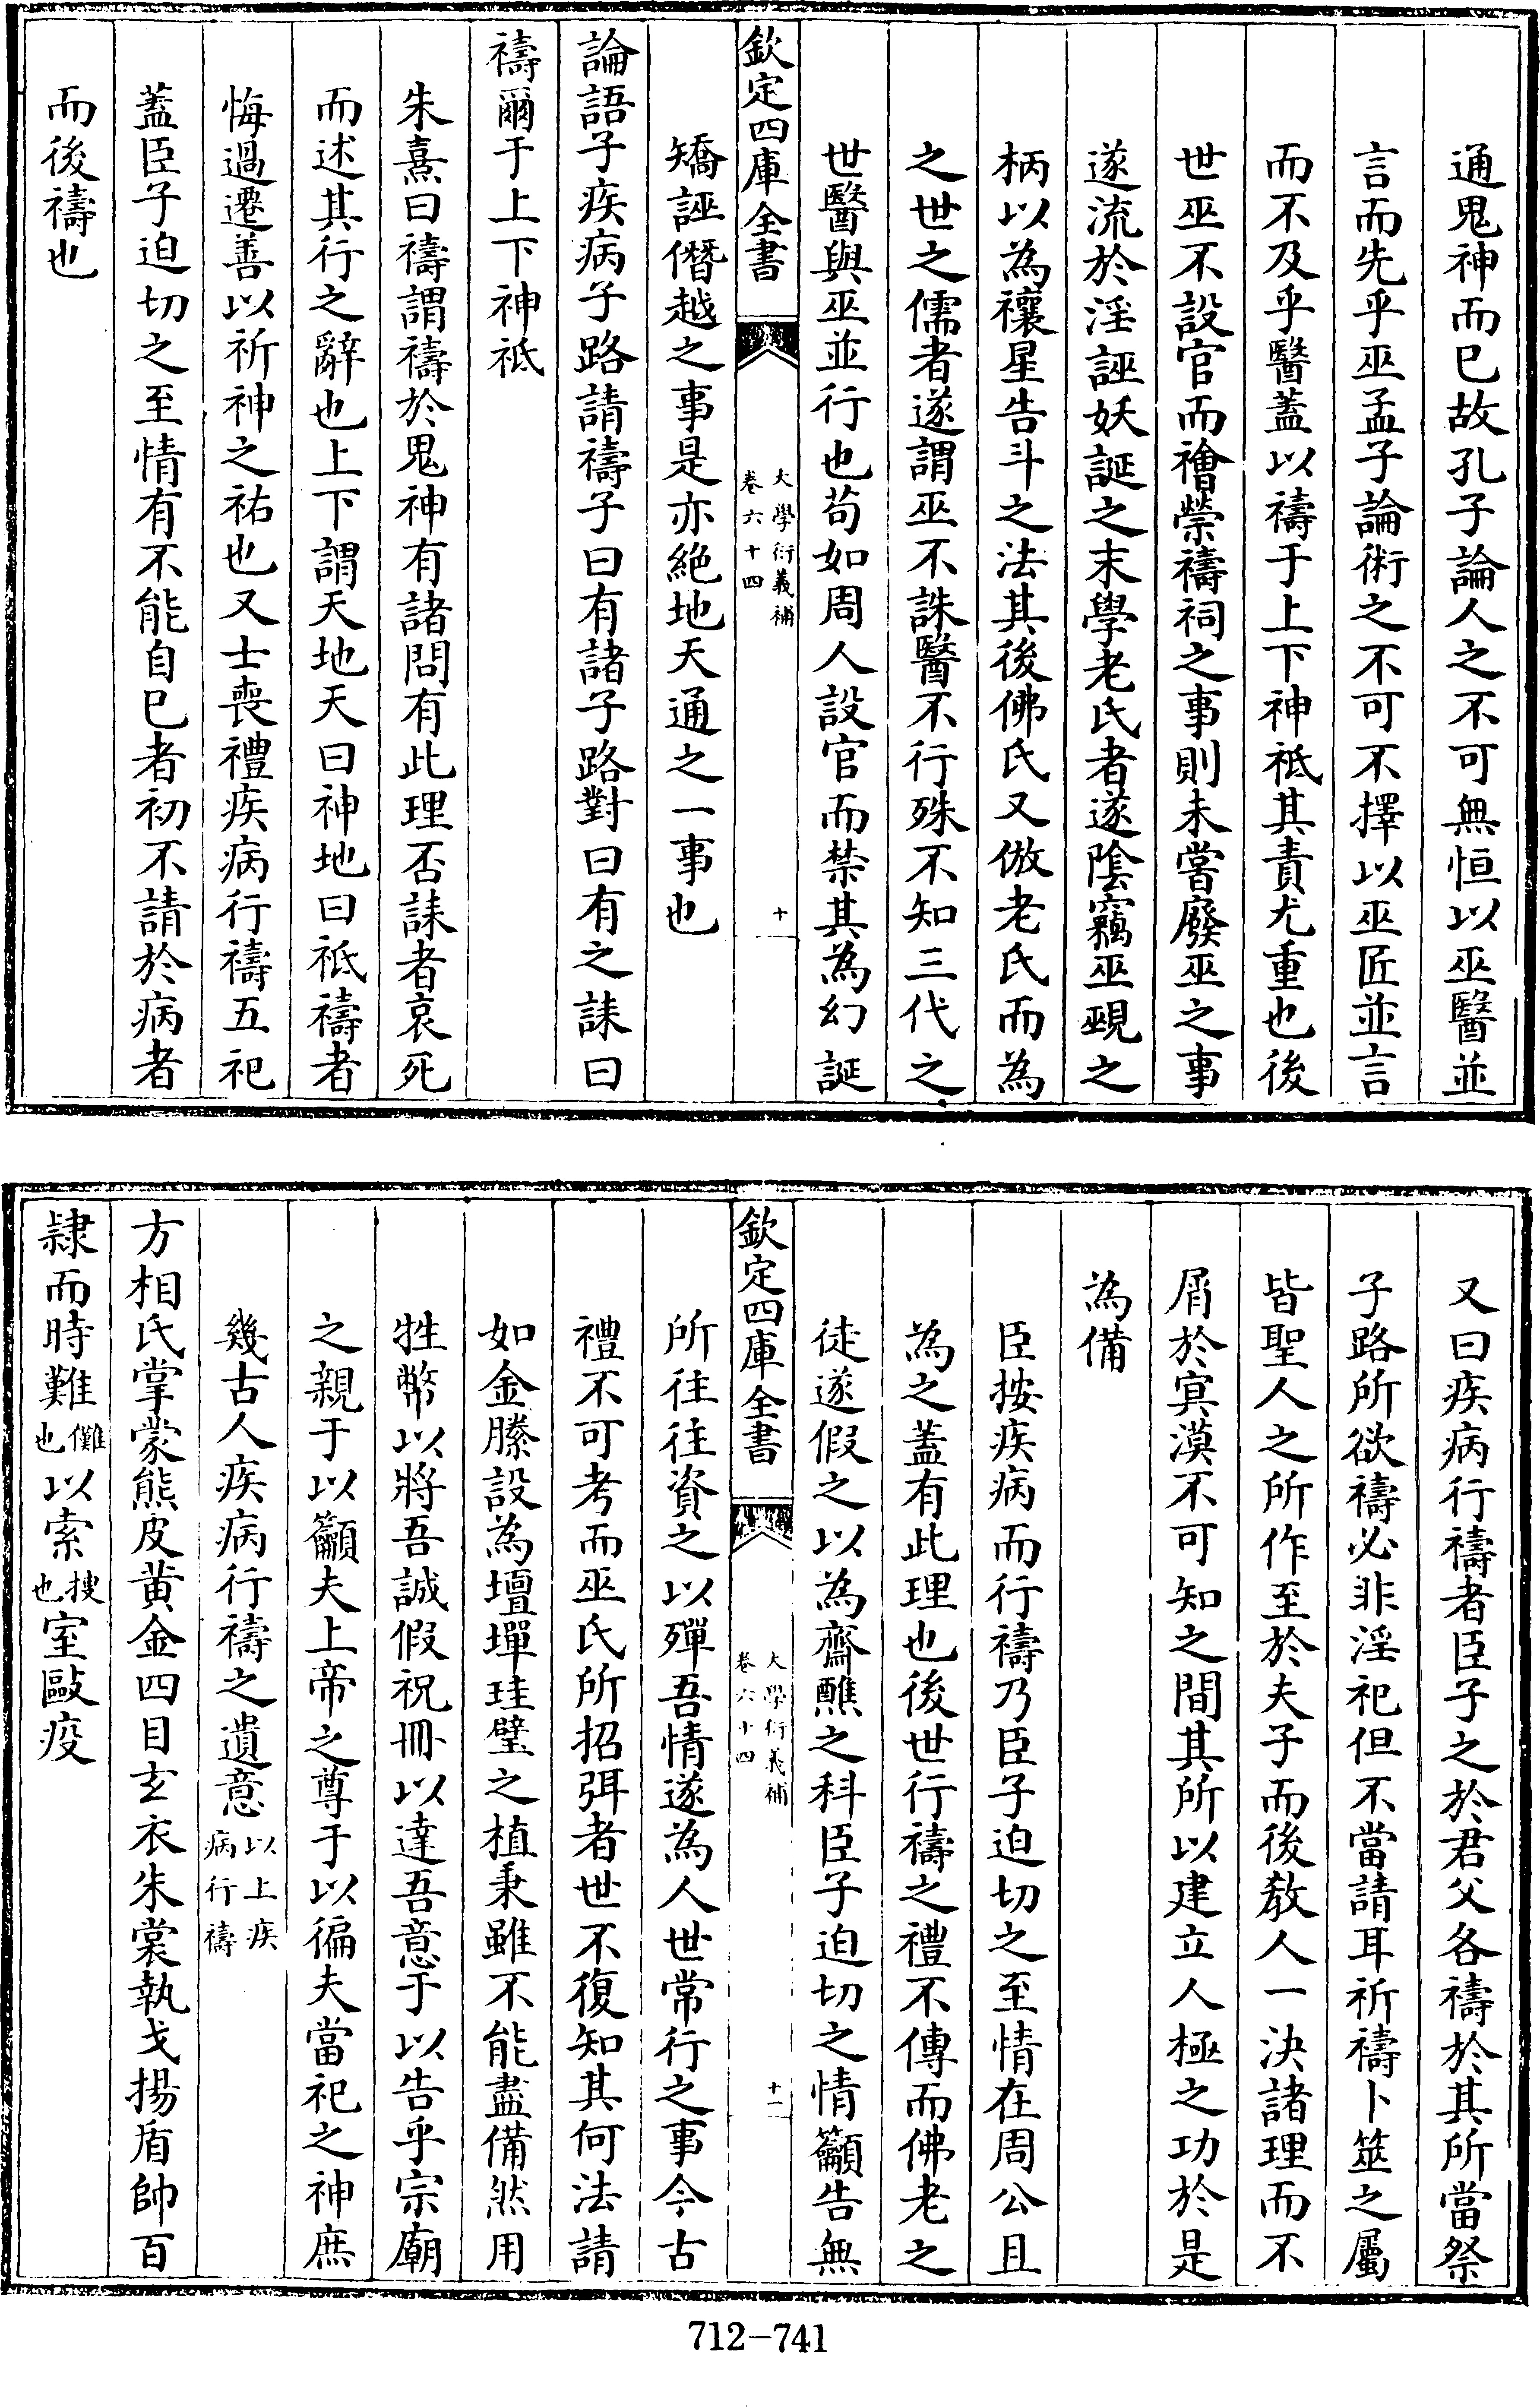 通鬼神而已故孔子論人之不可無恒以巫醫並
言而先乎巫孟子論術之不可不擇以巫匠並言
而不及乎醫蓋以禱于上下神祇其責尤重也後
世巫不設官而禬禜禱祠之事則未嘗廢巫之事
遂流於淫誣妖誕之末學老氏者遂陰竊巫覡之
柄以為禳星告斗之法其後佛氏又倣老氏而為
之世之儒者遂謂巫不誅醫不行殊不知三代之
世醫與巫並行也苟如周人設官而禁其為幻誕
欽定四庫全書
大學衍義補
卷六十四
十
矯誣僭越之事是亦絶地天通之一事也
論語子疾病子路請禱子曰有諸子路對曰有之誄曰
禱爾于上下神祇
朱熹曰禱謂禱於鬼神有諸問有此理否誄者哀死
而述其行之辭也上下謂天地天曰神地曰祇禱者
悔過遷善以祈神之祐也又士喪禮疾病行禱五祀
蓋臣子迫切之至情有不能自已者初不請於病者
而後禱也
又曰疾病行禱者臣子之於君父各禱於其所當祭
子路所欲禱必非淫祀但不當請耳祈禱卜筮之屬
皆聖人之所作至於夫子而後敎人一決諸理而不
屑於寘漠不可知之間其所以建立人極之功於是
為備
臣按疾病而行禱乃臣子迫切之至情在周公且
為之蓋有此理也後世行禱之禮不傳而佛老之
徒遂假之以為齋醮之科臣子迫切之情籲告無
欽定四庫全書
大學衍義補
卷六十四
十一
所往往資之以殫吾情遂為人世常行之事今古
禮不可考而巫氏所招弭者世不復知其何法請
如金縢設為壇墠珪璧之植秉雖不能盡備然用
牲幣以將吾誠假祝冊以達吾意于以告乎宗廟
之親于以籲夫上帝之尊于以徧夫當祀之神庶
幾古人疾病行禱之遺意以上疾病行禱
方相氏掌蒙熊皮黄金四目玄衣朱裳執戈揚盾帥百
隷而時難儺也以索搜也室敺疫
712-741